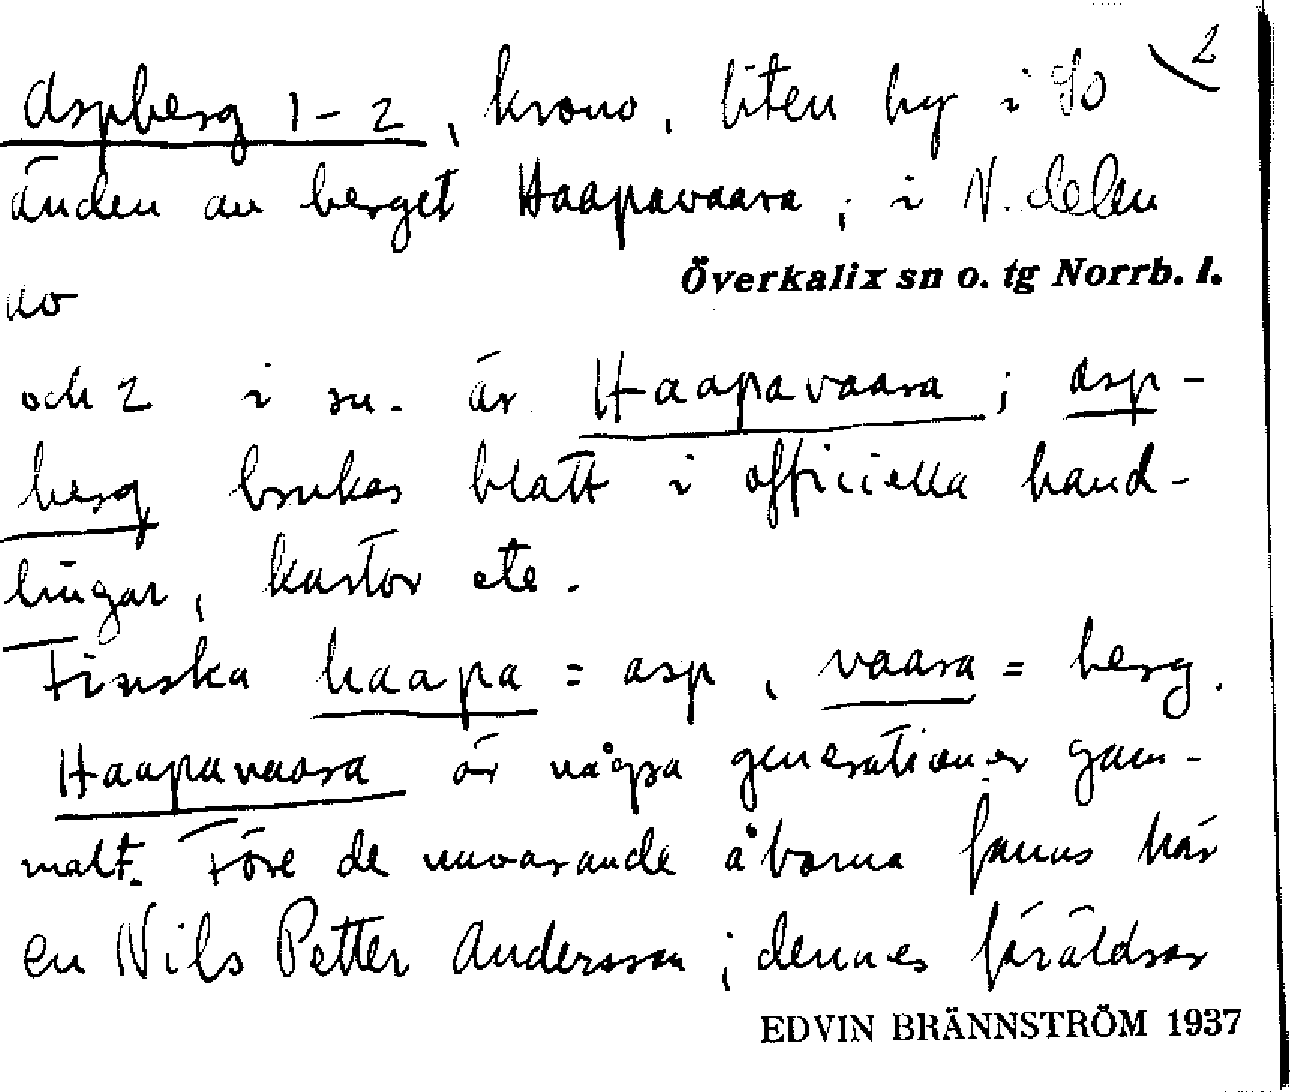 2
Aspberg 1-2, krono, liten by i So
änden av berget Haapavaara, i N. delen
Överkalix sn o. tg Norrb. l.
av
och 2 i sn. är Haapavaara; Asp-
berg brukas blott i officiella hand-
lingar, kartor etc.
Finska haapa = asp, vaara = berg.
Haapavaara är några generationer gam-
malt. Före de nuvarande åborna fanns här
en Nils Petter Andersson; dennes föräldrar
EDVIN BRÄNNSTRÖM 1937